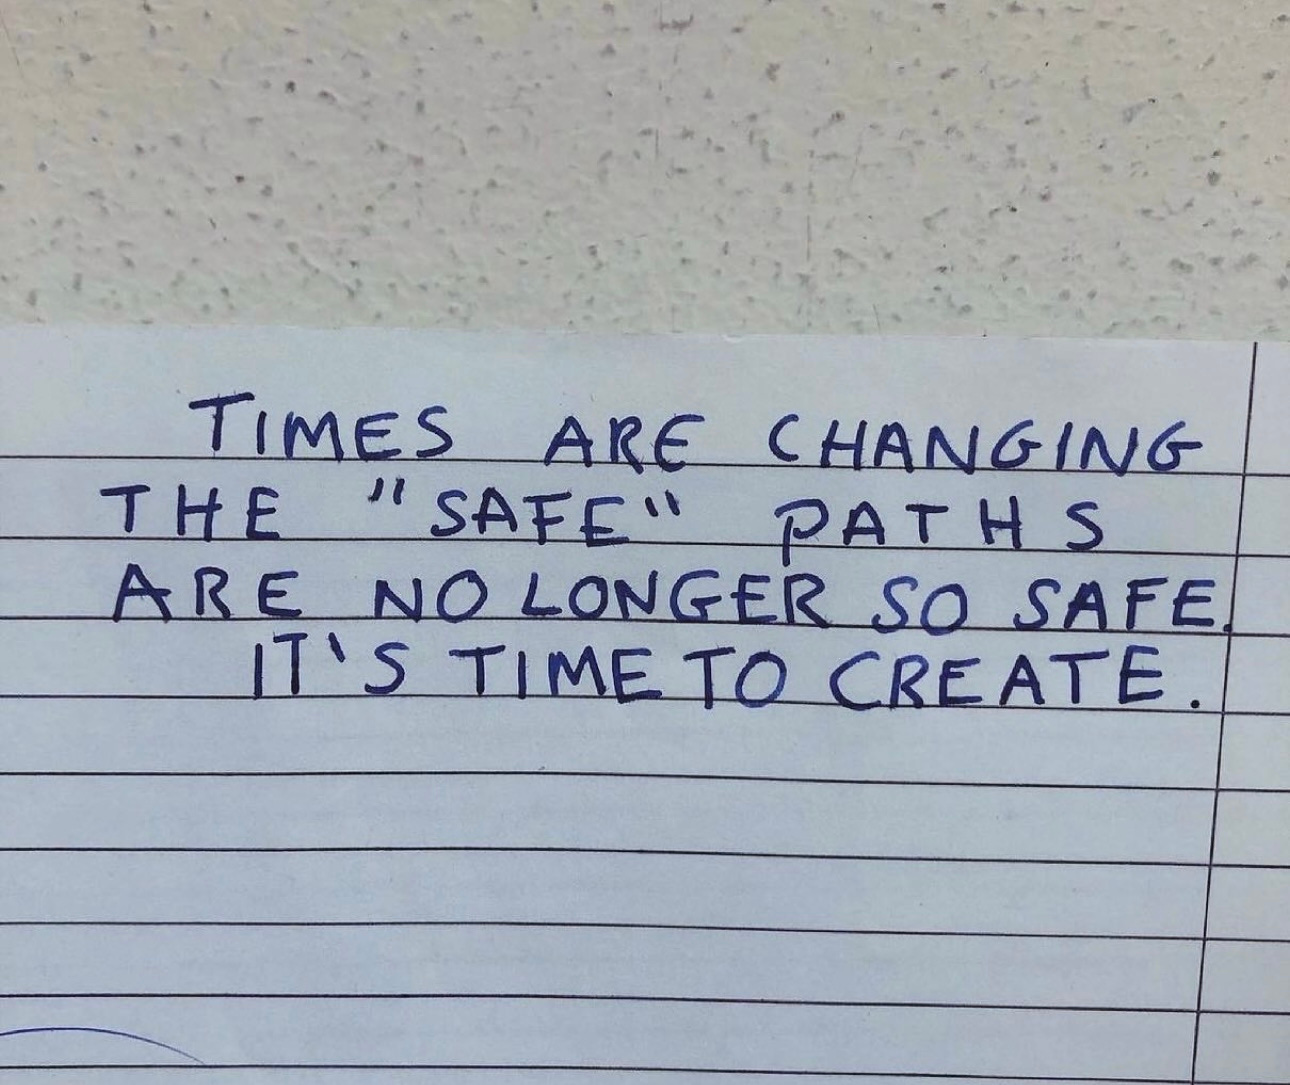 TIMES ARE CHANGING
THE "SAFE" PATHS
ARE NO LONGER SO SAFE.
IT'S TIME TO CREATE.